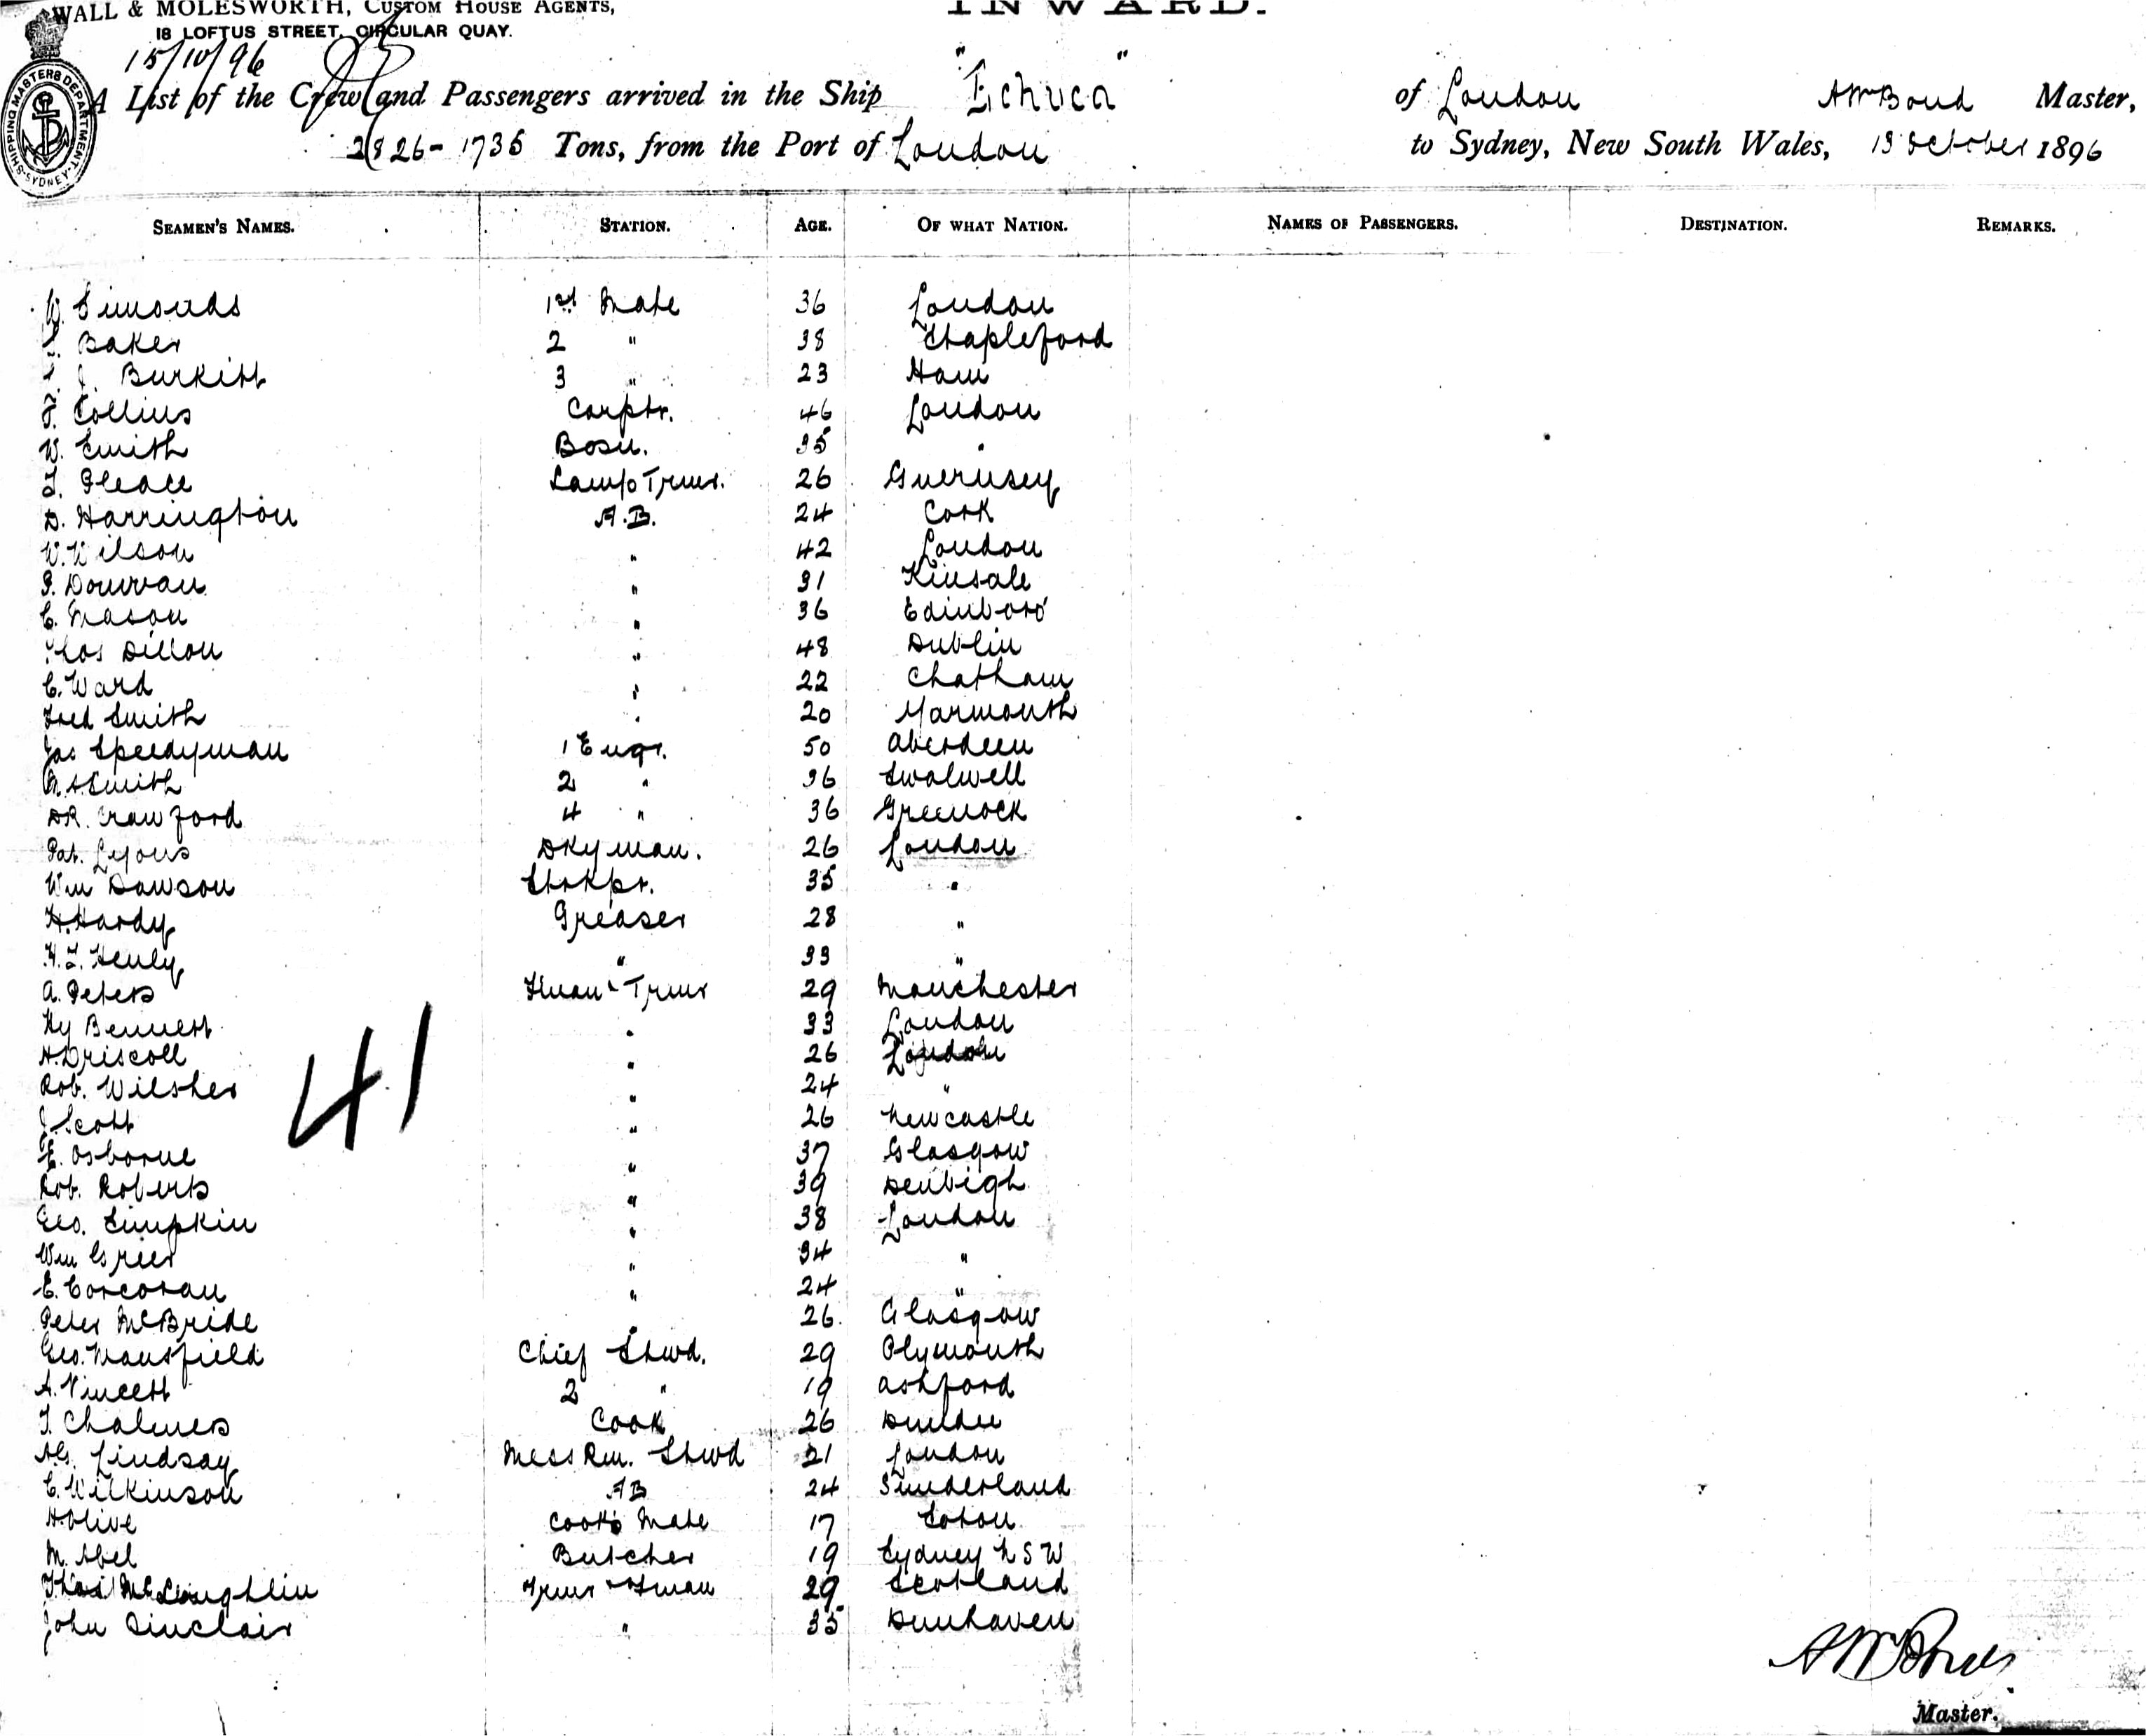 WALL & MOLESWORTH, CUSTOM HOUSE AGENTS,
18 LOFTUS STREET, CIRCULAR QUAY.
INWARD.
15/10/96
SHIPPING MASTERS DEPARTMENT SYDNEY
A List of the Crew and Passengers arrived in the Ship "Echuca" of London AWBond Master,
2826-1735 Tons, from the Port of London to Sydney, New South Wales, 13 October 1896
SEAMEN'S NAMES. STATION. AGE. OF WHAT NATION. NAMES OF PASSENGERS. DESTINATION. REMARKS.
W. Simonds 1st Mate 36 London
Baker 2 " 38 Stapleford
J. Burkitt 3 " 23 Ham
F. Collins Carptr. 46 London
W. Smith Bosn. 35 "
Lamp Trmr. 26 Guernsey
D. Harrington A.B. 24 Cork
W. Wilson " 42 London
P. Donovan " 31 Kinsale
C. Mason " 36 Edinboro'
Dillon " 48 Dublin
C. Ward " 22 Chatham
Fred Smith " 20 Yarmouth
Jas Speedyman 1 Engr. 50 Aberdeen
Smith 2 " 36 Swalwell
DR. Crawford 4 " 36 Greenock
Pat. Lyons Dkyman. 26 London
Wm Dawson Stokpr. 35 "
H. Hardy Greaser 28 "
H. J. Henly " 33 "
A. Peters Fman & Trmr 29 Manchester
Hy Bennett " 33 London
H. Driscoll " 26 London
Rob. Wilsher " 24 "
J. Scott " 26 Newcastle
E. Osborne " 37 Glasgow
Rob. Roberts " 39 Denbigh
Geo. Simpkin " 38 London
Wm Grier " 34 "
E. Corcoran " 24 "
Peter McBride " 26. Glasgow
Geo. Mansfield Chief Stwd. 29 Plymouth
A. Vincett 2 " 19 Ashford
J. Chalmers Cook 26 Dundee
Lindsay Mess Rm. Stwd 21 London
C. Wilkinson AB 24 Sunderland
H Olive Cooks Mate 17 Soton
M. Abel Butcher 19 Sydney N S W
McLoughlin Trmr & Fman 29 Scotland
John Sinclair " 35 Dunhaven
41
AWBond
Master.